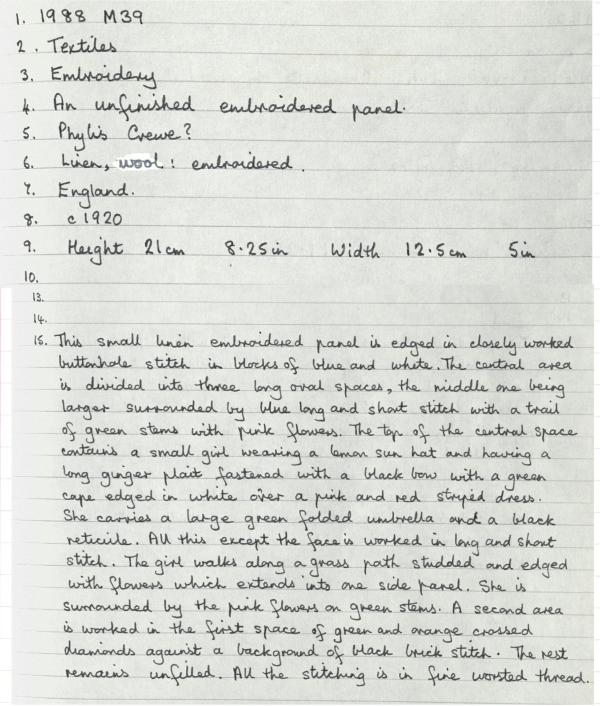 1. 1988 M39
2. Textiles
3. Embroidery
4. An unfinished embroidered panel.
5. Phylis Crewe?
6. Linen, wool: embroidered.
7. England.
8. c 1920
9. Height 21cm 8.25in Width 12.5cm 5in
10.
13.
14.
15. This small linen embroidered panel is edged in closely worked
buttonhole stitch in blocks of blue and white. The central area
is divided into three long oval spaces, the middle one being
larger surrounded by blue long and short stitch with a trail
of green stems with pink flowers. The top of the central space
contains a small girl wearing a lemon sun hat and having a
long ginger plait fastened with a black bow with a green
cape edged in white over a pink and red striped dress.
She carries a large green folded umbrella and a black
reticule. All this except the face is worked in long and short
stitch. The girl walks along a grass path studded and edged
with flowers which extends into one side panel. She is
surrounded by the pink flowers on green stems. A second area
is worked in the first space of green and orange crossed
diamonds against a background of black brick stitch. The rest
remains unfilled. All the stitching is in fine worsted thread.